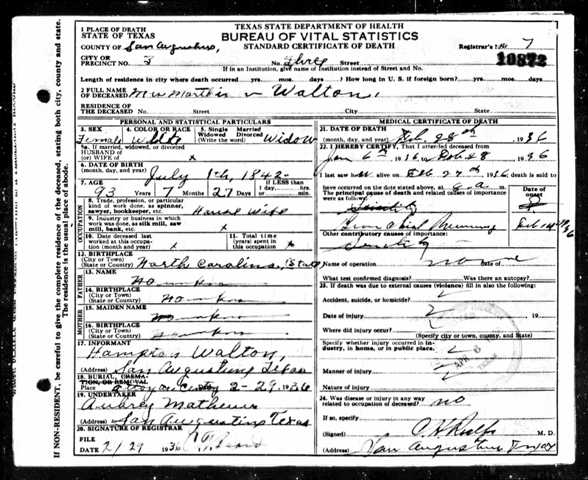 TEXAS STATE DEPARTMENT OF HEALTH
BUREAU OF VITAL STATISTICS
STANDARD CERTIFICATE OF DEATH
1 PLACE OF DEATH
STATE OF TEXAS
COUNTY OF San Augustine,
Registrar's No 7
10872
CITY OR
PRECINCT NO. No. Three Street
If in an Institution, give name of Institution instead of Street and No.
Length of residence in city where death occurred yrs. mos. days ? How long in U. S. if foreign born? yrs. mos. days
2 FULL NAME
OF DECEASED Walton,
RESIDENCE OF
THE DECEASED No. Street City State
PERSONAL AND STATISTICAL PARTICULARS
3. SEX 4. COLOR OR RACE 5. Single Married Widowed Divorced (Write the word)
Female White Widow
5a. If married, widowed, or divorced
HUSBAND OF
(or) WIFE of x
6. DATE OF BIRTH
(month, day, and year) July 1st, 1842-
7. AGE Years Months Days If LESS than
1 day, hrs.
or min.
93 7 27
OCCUPATION
8. Trade, profession, or particular
kind of work done, as spinner,
sawyer, bookkeeper, etc. House Wife
9. Industry or business in which
work was done, as silk mill, saw
mill, bank, etc. x
10. Date deceased last
worked at this occupation
(month and year) x
11. Total time (years)
spent in this
occupation x
12. BIRTHPLACE
(City or Town)
(State or Country) North Carolina, State
FATHER
13. NAME
14. BIRTHPLACE
(City or Town)
(State or Country)
MOTHER
15. MAIDEN NAME
16. BIRTHPLACE
(City or Town)
(State or Country)
17. INFORMANT
Walton,
(Address) San Augustine Texas
18. BURIAL, CREMATION, OR REMOVAL
Place 2-29 1936
19. UNDERTAKER
Aubrey Mathews
(Address) San Augustine Texas
20. SIGNATURE OF REGISTRAR
FILE
DATE 2/29 1936
MEDICAL CERTIFICATE OF DEATH
21. DATE OF DEATH
(month, day, and year) Feb. 28th 1936
22. I HEREBY CERTIFY, That I attended deceased from
Jan 6th 1936 to Feb 28 1936
I last saw h alive on Feb 27th 1936 death is said to
have occurred on the date stated above, at m.
The principal cause of death and related causes of importance
were as follows:
Date of
onset
Senility
Other contributory causes of importance:
Senility
Name of operation none Date of
What test confirmed diagnosis? Was there an autopsy?
23. If death was due to external causes (violence) fill in also the following:
Accident, suicide, or homicide?
Date of injury 19
Where did injury occur?
(Specify city or town, county, and State)
Specify whether injury occurred in Industry, in home, or in public place.
Manner of injury
Nature of injury
24. Was disease or injury in any way
related to occupation of deceased? no
If so, specify
(Signed) M. D.
(Address) San Augustine Texas
If NON-RESIDENT, be careful to give the complete residence of the deceased, stating both city, county and state.
The residence is the usual place of abode.